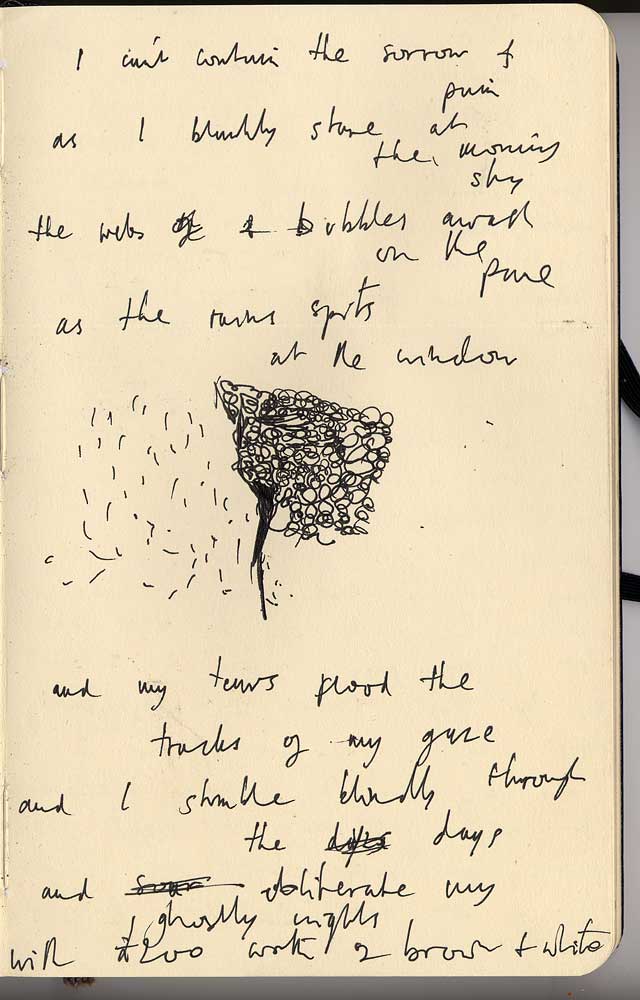 I can't contain the sorrow &
pain
as I blankly stare at
the morning
sky
the webs of bubbles awash
on the
pane
as the rains spits
at the window
and my tears flood the
tracks of my gaze
and I stumble blindly through
the days
and obliterate my
ghostly nights
with £200 worth of brown & white